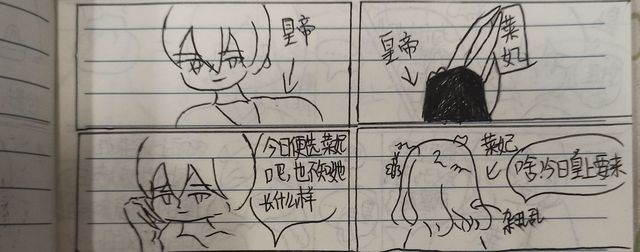 皇帝
皇帝
菜妃
今日便先菜妃
吧,也不知她
长什么样
菜妃
啥,今日皇上要来